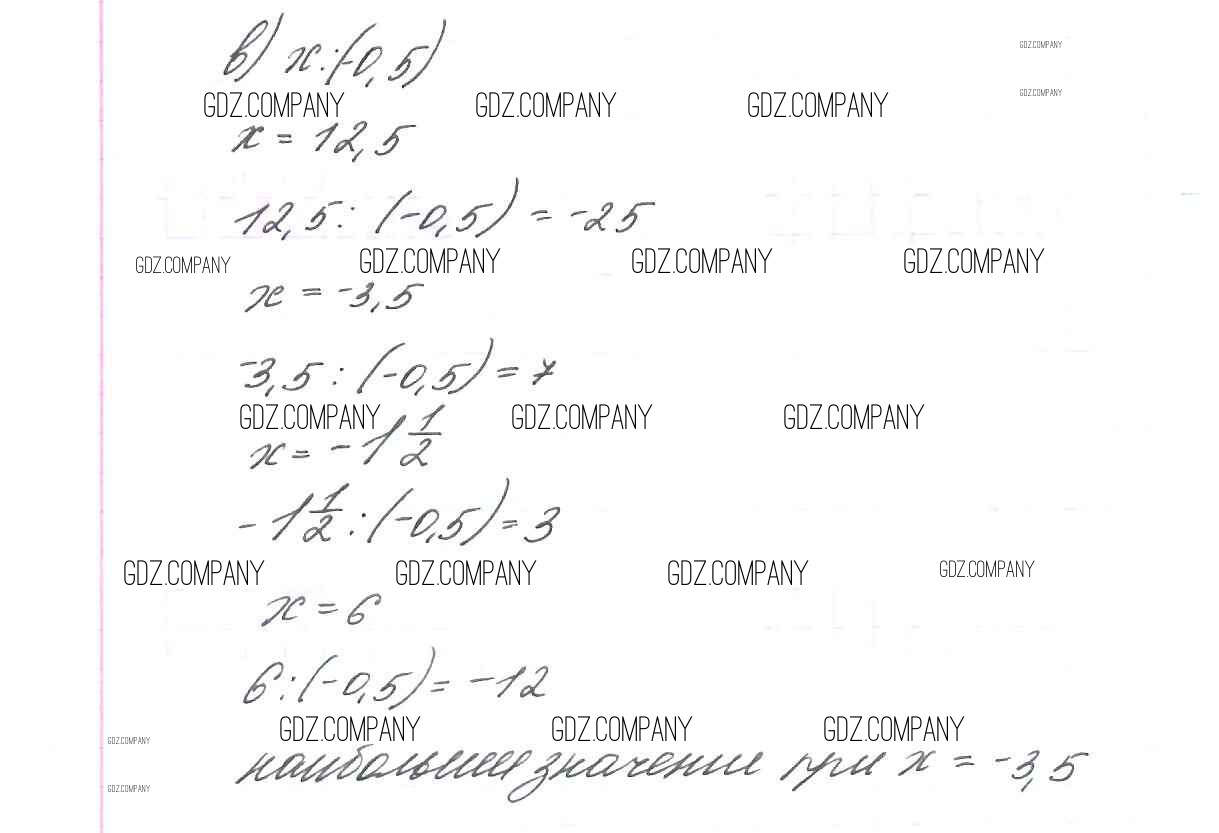 в) x:(-0,5)
GDZ.COMPANY
GDZ.COMPANY
GDZ.COMPANY GDZ.COMPANY GDZ.COMPANY
x = 12,5
12,5 : (-0,5) = -25
GDZ.COMPANY GDZ.COMPANY GDZ.COMPANY GDZ.COMPANY
x = -3,5
-3,5 : (-0,5) = 7
GDZ.COMPANY GDZ.COMPANY GDZ.COMPANY
x = -1 1/2
-1 1/2 : (-0,5) = 3
GDZ.COMPANY GDZ.COMPANY GDZ.COMPANY GDZ.COMPANY
x = 6
6 : (-0,5) = -12
GDZ.COMPANY GDZ.COMPANY GDZ.COMPANY
GDZ.COMPANY
наибольшее значение при x = -3,5
GDZ.COMPANY